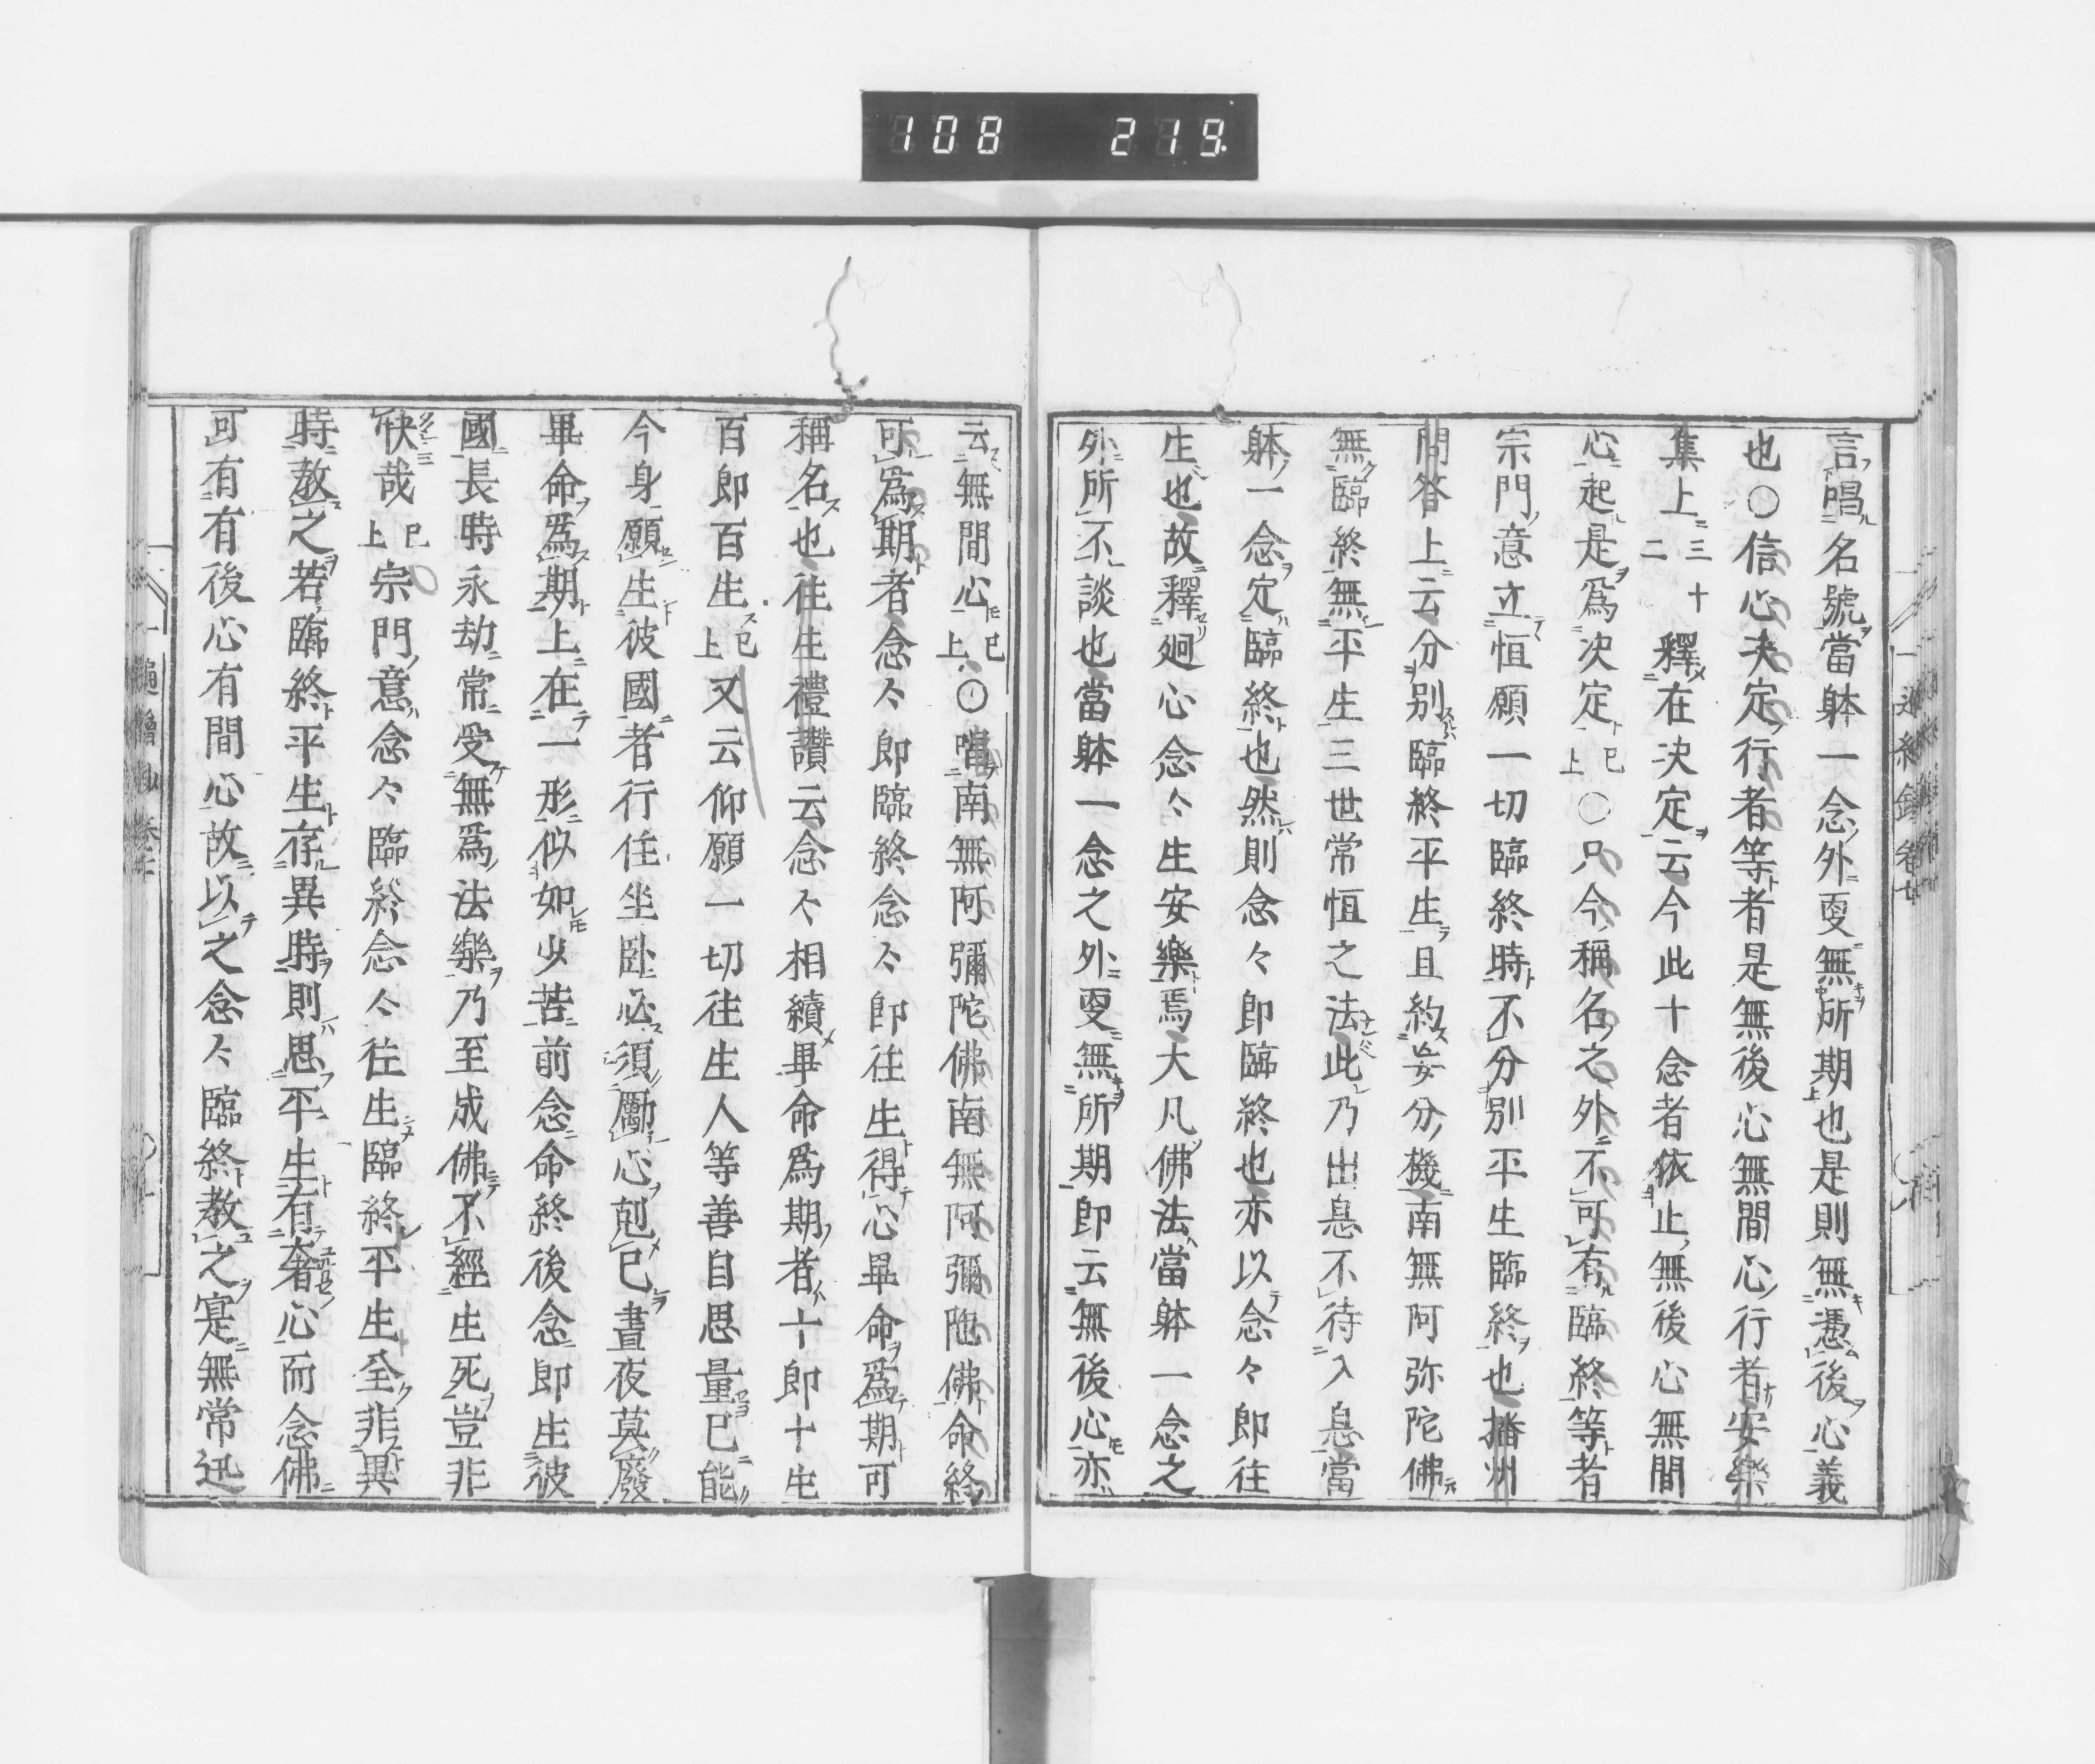 108 219
言唱名號當躰一念外更無所期也是則無憑後心義
也○信心决定行者等者是無後心無間心行者安樂
集上三十二釋在决定云今此十念者依止無後心無間
心起是爲决定已上○只今稱名之外不可有臨終等者
宗門意立恒願一切臨終時不分別平生臨終也播州
問答上云分別臨終平生且約妄分機南無阿弥陀佛
無臨終無平生三世常恒之法此乃出息不待入息當
躰一念定臨終也然則念々即臨終也亦以念々即往
生也故釋廻心念々生安樂焉大凡佛法當躰一念之
外所不談也當躰一念之外更無所期即云無後心亦
云無間心已上○唱南無阿彌陀佛南無阿彌陀佛命終
可爲期者念々即臨終念々即往生得心畢命爲期可
稱名也往生禮讚云念々相續畢命爲期者十即十生
百即百生已上又云仰願一切往生人等善自思量已能
今身願生彼國者行住坐臥必須勵心剋已晝夜莫廢
畢命爲期上在一形似如少苦前念命終後念即生彼
國長時永劫常受無爲法樂乃至成佛不經生死豈非
快哉已上宗門意念々臨終念々往生臨終平生全非異
時教之若臨終平生存異時則思平生有奢心而念佛
可有有後心有間心故以之念々臨終教之寔無常迅